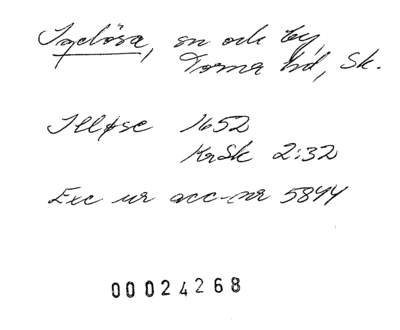 Igelösa, sn och by,
Torna hd, Sk.
Illøse 1652
KrSk 2:32
Exc ur acc-nr 5844
00024268